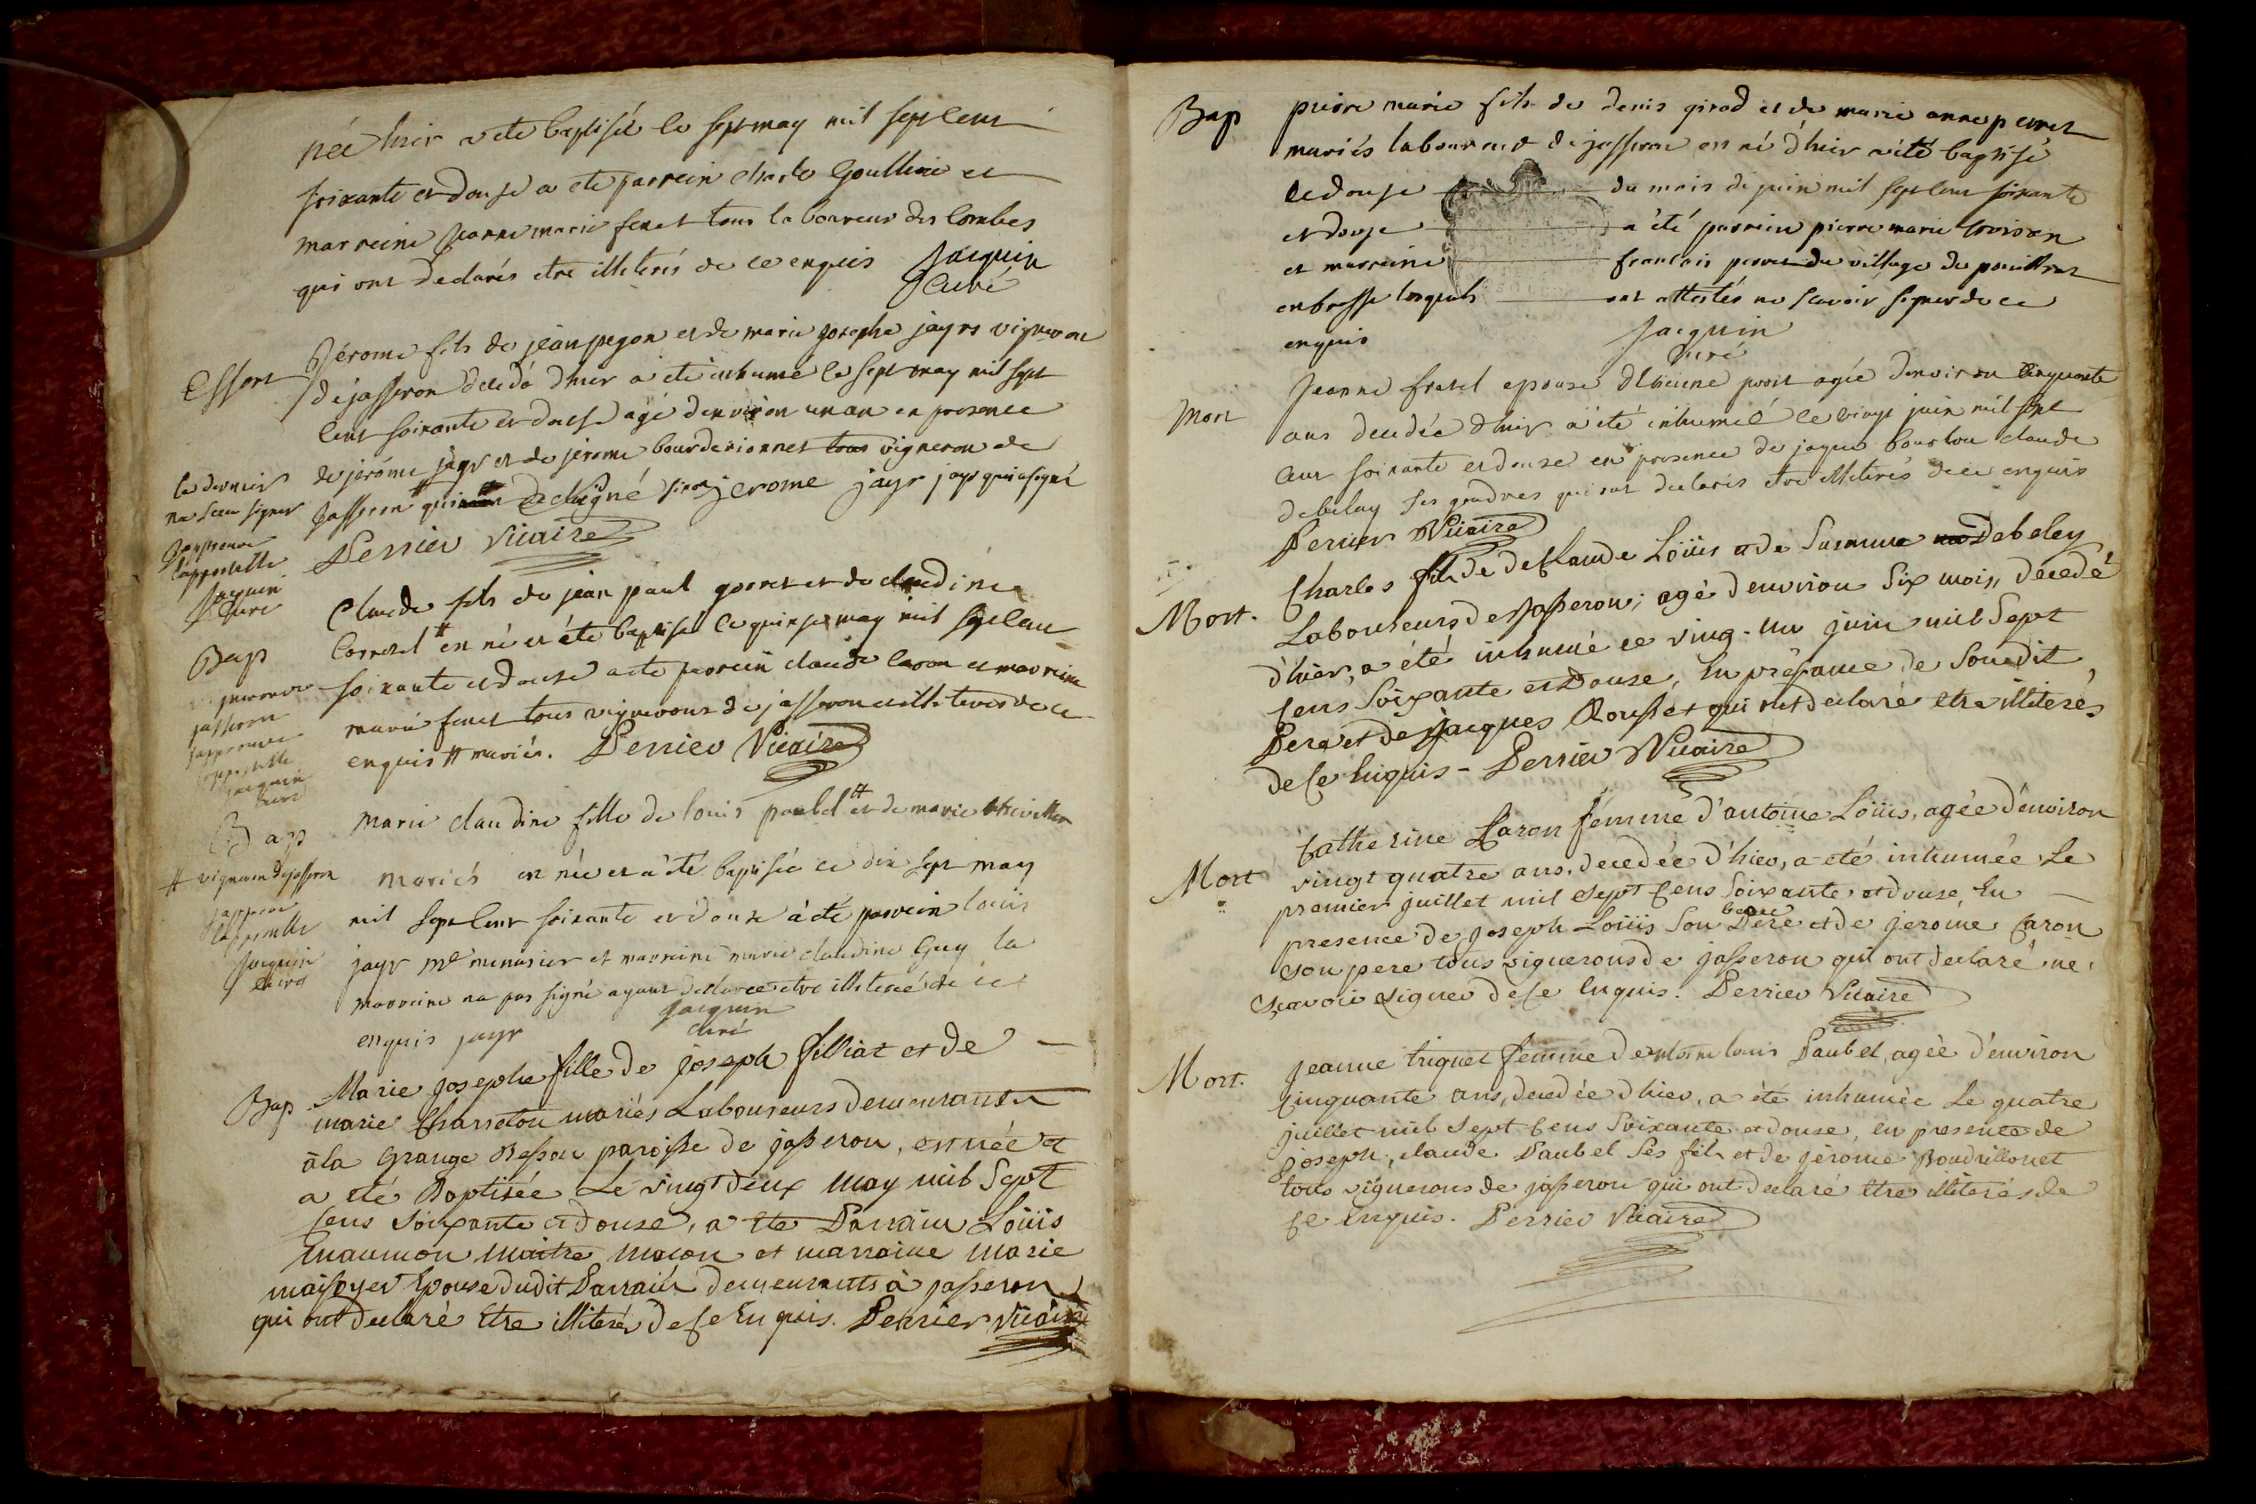 née hier a eté baptisée le sept may mil sept cent
soixante et douse a eté parrein charle Goulline et
marreine jeanne marie feret tous laboureur des combes
qui ont declarés etre illiterés de ce enquis Jacquin
Curé
jérome fils de jean pegon et de marie josephe jayr vigneron
de jasseron decedé dhier a eté inhumé le sept may mil sept
cent soixante et douse agé denviron un an en presence
de jerome jayr et de jerome bourderionnet tous vigneron de
jasseron qui signé jerome jayr jayr qui a signé
le dernier
na sceu signer
Japprouve
lappostille
Jacquin
Curé
Perrier Vicaire
Bap
Claude fils de jean paul gorret et de claudine
Cornet # est né et été baptisé le quinse may mil sept cent
soixante et douse a eté parrein claude caron et marreine
marie feret tous vignerons de jasseron illiterés de ce
enquis # mariés. Perrier Vicaire
jasseron
japprouve
lappostille
jacquin
curé
Bap
marie claudine fille de louis paubel # et de marie
# vigneron de jasseron
mariés est née et a été baptisée ce dix sept may
mil sept cent soixante et douse a été parrein louis
jayr me menusier et marreine marie claudine Guy la
marreine na pas signé ayant declarée etre illiterée de ce
enquis jayr Jacquin
curé
japprouve
lappostille
Jacquin
curé
Bap
Marie josephe fille de joseph filliat et de
marie Charreton mariés Laboureurs demeurants
à la Grange Besson paroisse de jasseron, est née et
a eté Baptisée Le vingt deux May mil Sept
Cens Soixante et douse, a eté Parrain Loüis
maumon maitre maçon et marraine Marie
Epouse dudit Parrain demeurants à jasseron
qui ont declaré Etre illiterés de Ce Enquis. Perrier Vicaire
Bap
pierre marie fils de denis girod et de marie anne perret
mariés laboureurs de jasseron est né d'hier a été baptisé
le douse du mois de juin mil sept cent soixante
et douse a été parrein pierre marie
et marreine francois perret du village de
en bresse lesquels ont attestés ne scavoir signer de ce
enquis Jacquin
curé
mort
jeanne fratel epouse dEtienne povit agée denviron cinquante
ans decedée dhier a été inhumée le vingt juin mil sept
cent soixante et douse en presence de jaque bouslon claude
debelay ses gendres qui ont declarés etre illiterés de ce enquis
Perrier Vicaire
Mort.
Charles fils de Claude Loüis et de Susanne Debeley
Laboureurs de jasseron; agé denviron Six mois, decedé
d'hier, a été inhumé ce vingt-un juin mil Sept
Cens Soixante et Douse, En présance de Son dit
Pere et de jacques Rousset qui ont declaré etre illiterés
de Ce Enquis - Perrier Vicaire
Mort
Catherine Caron femme d'antoine Loüis, agée d'environ
vingt quatre ans, decedée d'hier, a eté inhumée Le
premier juillet mil Sept Cens Soixante et douse En
presence de joseph Loüis Son beau Pere et de jerome Caron
Son pere tous vignerons de jasseron qui ont declaré ne
Scavoir Signer de Ce Enquis. Perrier Vicaire
Mort.
jeanne triquet femme de louis Paubel, agée d'environ
Cinquante ans, decedée dhier, a été inhumée Le quatre
juillet mil Sept Cens Soixante et douse, en presence de
joseph, claude Paubel Ses fils et de jérome Boudrillonet
tous vignerons de jasseron qui ont declaré Etre illiterés de
Ce enquis. Perrier Vicaire